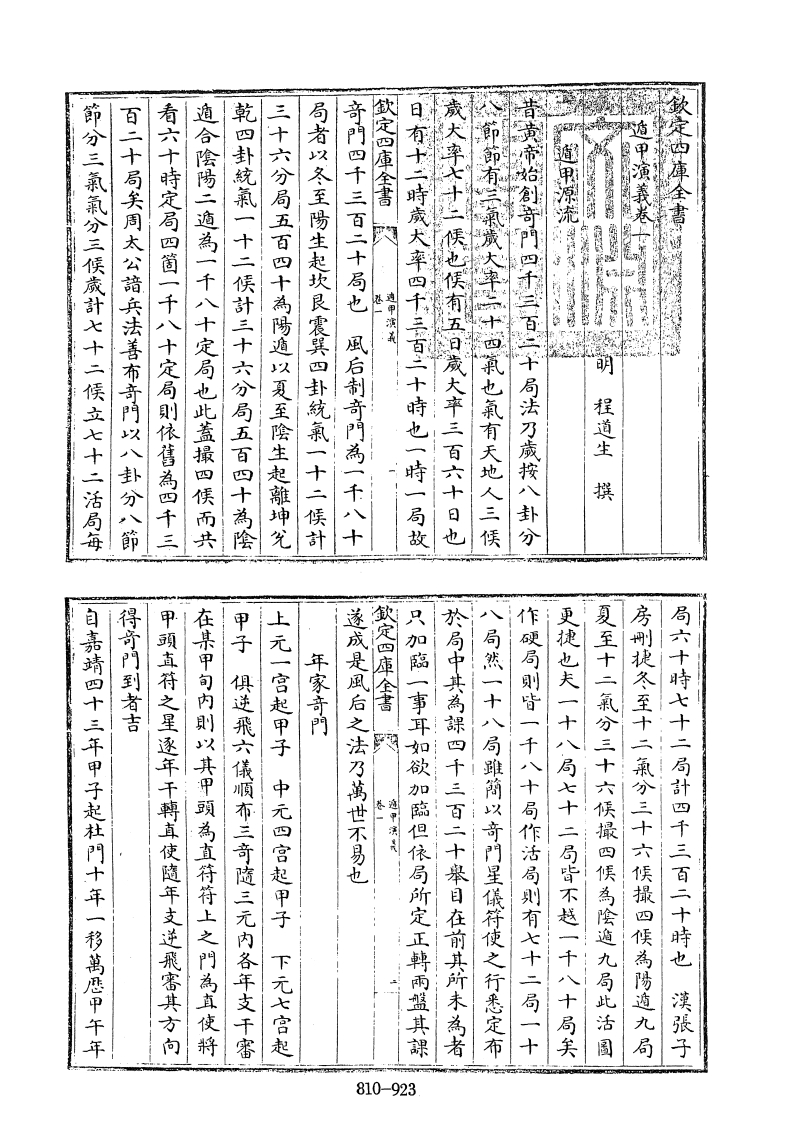 欽定四庫全書
遁甲演義卷一
明 程道生 撰
遁甲源流
昔黃帝始創奇門四千三百二十局法乃歲按八卦分
八節節有三氣歲大率二十四氣也氣有天地人三候
歲大率七十二候也候有五日歲大率三百六十日也
日有十二時歲大率四千三百二十時也一時一局故
欽定四庫全書
遁甲演義
卷一
一
奇門四千三百二十局也 風后制奇門為一千八十
局者以冬至陽生起坎艮震巽四卦統氣一十二候計
三十六分局五百四十為陽遁以夏至陰生起離坤兌
乾四卦統氣一十二候計三十六分局五百四十為陰
遁合陰陽二遁為一千八十定局也此蓋撮四候而共
看六十時定局四箇一千八十定局則依舊為四千三
百二十局矣周太公諳兵法善布奇門以八卦分八節
節分三氣氣分三候歲計七十二候立七十二活局每
局六十時七十二局計四千三百二十時也 漢張子
房刪捷冬至十二氣分三十六候撮四候為陽遁九局
夏至十二氣分三十六候撮四候為陰遁九局此活圖
更捷也夫一十八局七十二局皆不越一千八十局矣
作硬局則皆一千八十局作活局則有七十二局一十
八局然一十八局雖簡以奇門星儀符使之行悉定布
於局中其為課四千三百二十舉目在前其所未為者
只加臨一事耳如欲加臨但依局所定正轉兩盤其課
欽定四庫全書
遁甲演義
卷一
二
遂成是風后之法乃萬世不易也
年家奇門
上元一宫起甲子 中元四宫起甲子 下元七宫起
甲子 俱逆飛六儀順布三奇隨三元內各年支干審
在某甲旬內則以其甲頭為直符符上之門為直使將
甲頭直符之星逐年干轉直使隨年支逆飛審其方向
得奇門到者吉
自嘉靖四十三年甲子起杜門十年一移萬厯甲午年
810-923